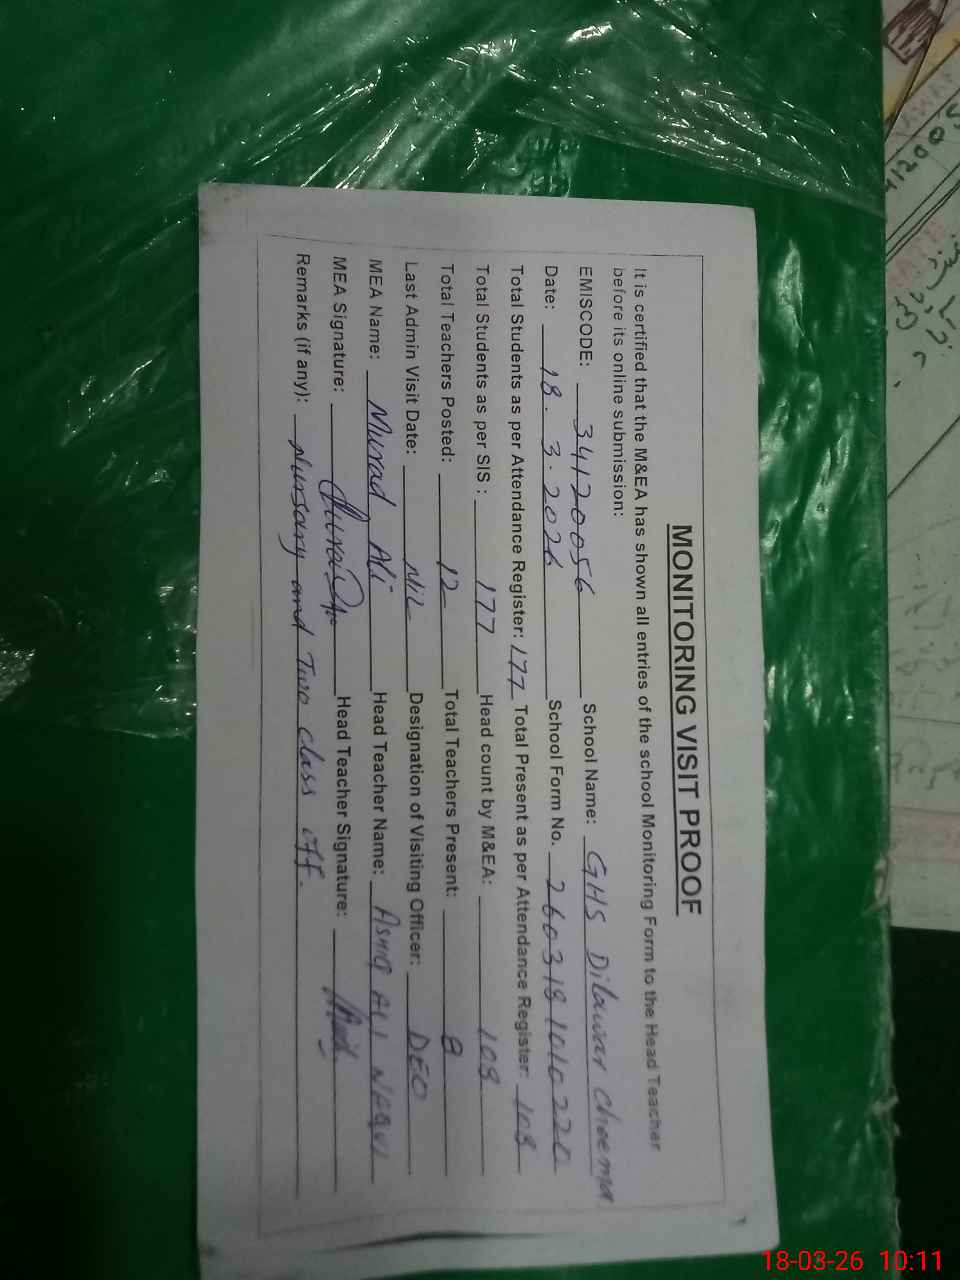 MONITORING VISIT PROOF
It is certified that the M&EA has shown all entries of the school Monitoring Form to the Head Teacher
before its online submission:
EMISCODE: 34120056 School Name: GHS Dilawar Cheema
Date: 18.3.2026 School Form No. 2603181010220
Total Students as per Attendance Register: 177 Total Present as per Attendance Register: 108
Total Students as per SIS: 177 Head count by M&EA: 108
Total Teachers Posted: 12 Total Teachers Present: 8
Last Admin Visit Date: Nil Designation of Visiting Officer: DEO
MEA Name: Murad Ali Head Teacher Name: Ashiq Ali Naqvi
MEA Signature: Head Teacher Signature:
Remarks (if any): Nursary and Two class off.
18-03-26 10:11